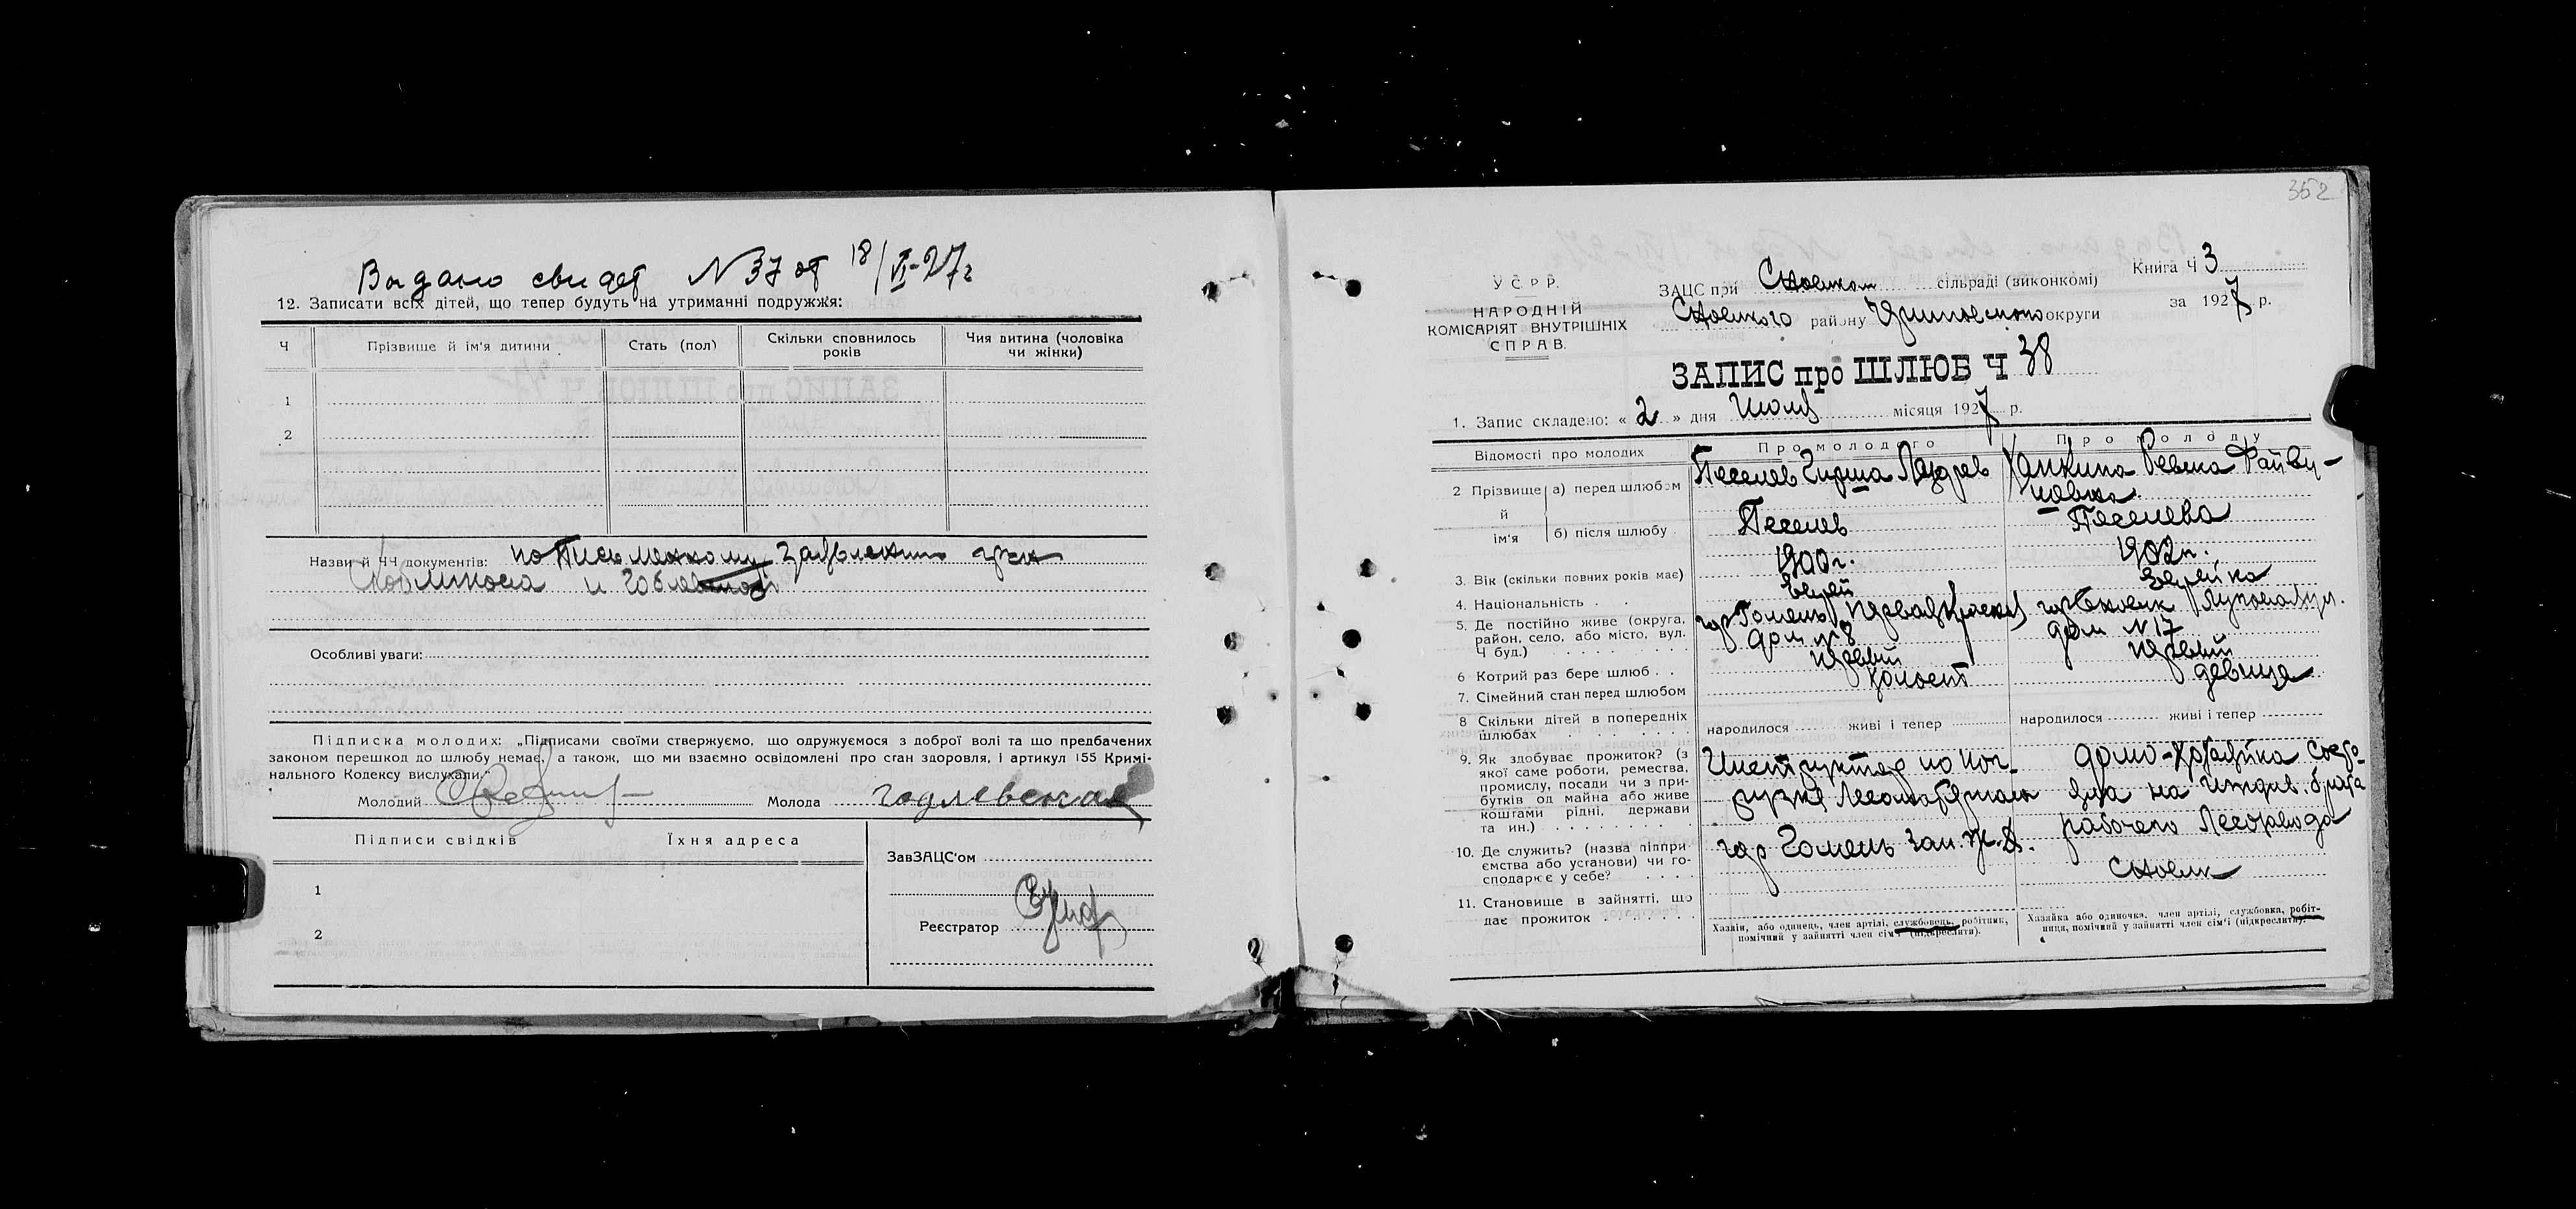 Выдано свидет N 37 от 18/VI-27г
12. Записати всіх дітей, що тепер будуть на утриманні подружжя:
Ч
Прізвище й ім'я дитини
Стать (пол)
Скільки сповнилось років
Чия дитина (чоловіка чи жінки)
1
2
Назви й ЧЧ документів: по письменному
и
Особливі уваги:
Підписка молодих: „Підписами своїми стверджуємо, що одружуємося з доброї волі та що предбачених
законом перешкод до шлюбу немає, а також, що ми взаємно освідомлені про стан здоровля, і артикул 155 Кримі-
нального Кодексу вислухали."
Молодий
Молода годлевская
Підписи свідків
Їхня адреса
1
2
ЗавЗАЦС'ом
Реєстратор
352
У С Р Р.
НАРОДНІЙ
КОМІСАРІЯТ ВНУТРІШНІХ
СПРАВ.
Книга Ч 3
за 1927 р.
ЗАЦС при Сновском сільраді (виконкомі)
Сновского району округи
ЗАПИС про ШЛЮБ Ч 38
1. Запис складено: « 2 » дня Июля місяця 1927 р.
Відомості про молодих
Про молодого
Про молоду
2 Прізвище й ім'я
а) перед шлюбом
Песелев Гирша
Ханкина Ревека Файви-
новна
б) після шлюбу
Песелев
Песелева
3. Вік (скільки повних років має)
1900г.
1902г.
4. Національність . .
еврей
еврейка
5. Де постійно живе (округа,
район, село, або місто, вул.
Ч буд.)
гор Гомель
дом N 8
гор Сновск
дом N 17
6 Котрий раз бере шлюб . .
первый
первый
7. Сімейний стан перед шлюбом
холост
девица
8 Скільки дітей в попередніх
шлюбах
народилося живі і тепер
народилося живі і тепер
9. Як здобуває прожиток? (з
якої саме роботи, ремества,
промислу, посади чи з при-
бутків од майна або живе
коштами рідні, держави
та ин.)
Инструктор по пог-
рузке Лесоматериалов
домо-хозяйка
на иждив. брата
рабочего Лесозавода
10. Де служить? (назва підпри-
ємства або установи) чи го-
сподарює у себе?
гор Гомель зап. ж.д.
Сновск
11. Становище в зайнятті, що
дає прожиток
Хазяін, або одинець, член артілі, службовець, робітник,
помічний у зайнятті член сім'ї (підкреслити).
Хазяйка або одиночка, член артілі, службовка, робіт-
ниця, помічний у зайнятті член сім'ї (підкреслити).